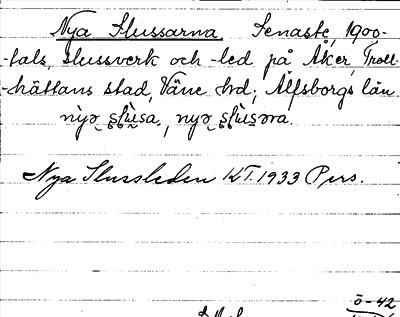 Nya Slussarna. Senaste, 1900-
-tals, slussverk och -led på Åker, Troll-
-hättans stad, Väne hd; Älfsborgs län
Nya Slussleden KT. 1933 Pers.
ö-42